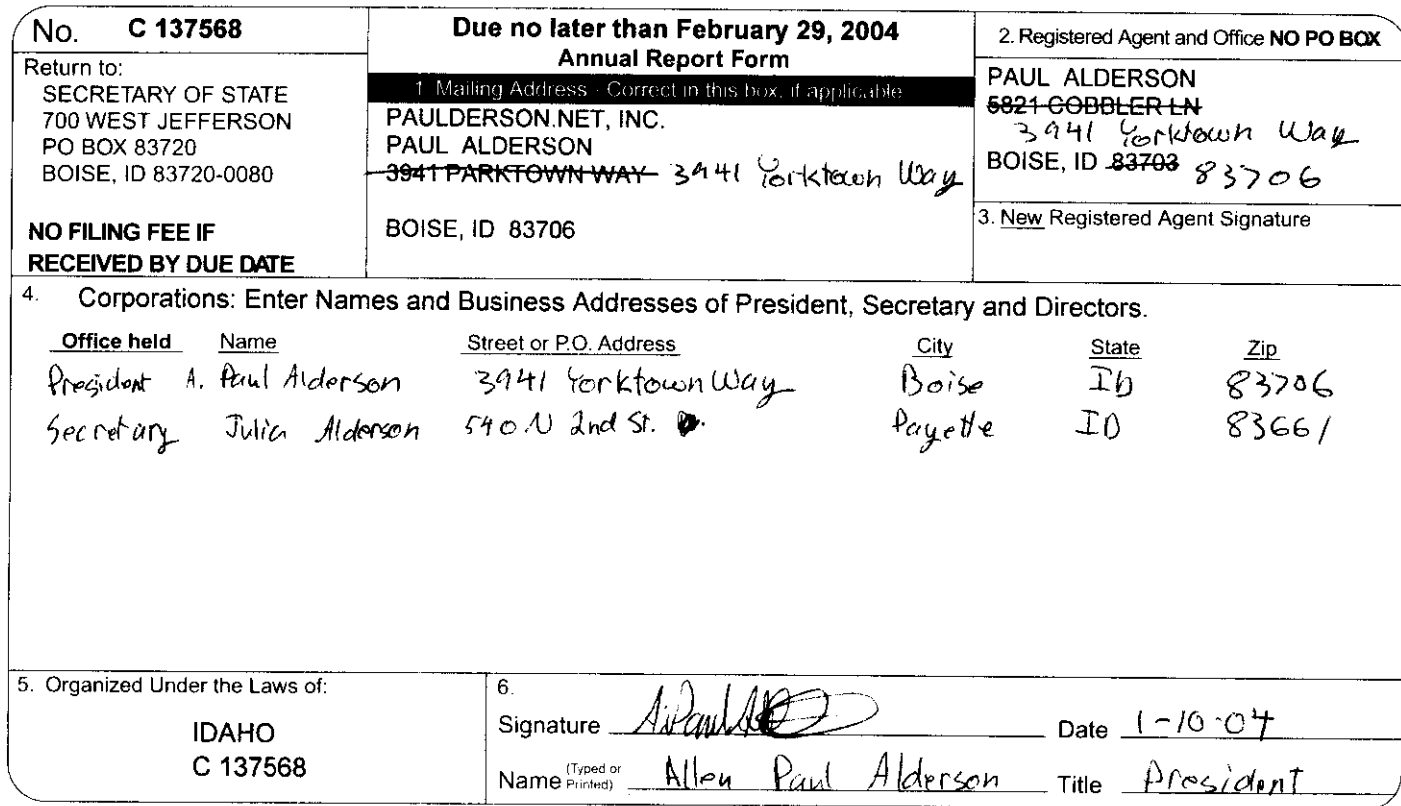 No. C 137568
Return to:
SECRETARY OF STATE
700 WEST JEFFERSON
PO BOX 83720
BOISE, ID 83720-0080
NO FILING FEE IF
RECEIVED BY DUE DATE
Due no later than February 29, 2004
Annual Report Form
1. Mailing Address - Correct in this box, if applicable
PAULDERSON.NET, INC.
PAUL ALDERSON
3941 PARKTOWN WAY 3941 Yorktown Way
BOISE, ID 83706
2. Registered Agent and Office NO PO BOX
PAUL ALDERSON
5821 COBBLER LN
3941 Yorktown Way
BOISE, ID 83703 83706
3. New Registered Agent Signature
4. Corporations: Enter Names and Business Addresses of President, Secretary and Directors.
Office held Name Street or P.O. Address City State Zip
President A. Paul Alderson 3941 Yorktown Way Boise ID 83706
Secretary Julia Alderson 540 N 2nd St. Payette ID 83661
5. Organized Under the Laws of:
IDAHO
C 137568
6.
Signature A. Paul Date 1-10-04
Name (Typed or Printed) Allen Paul Alderson Title President